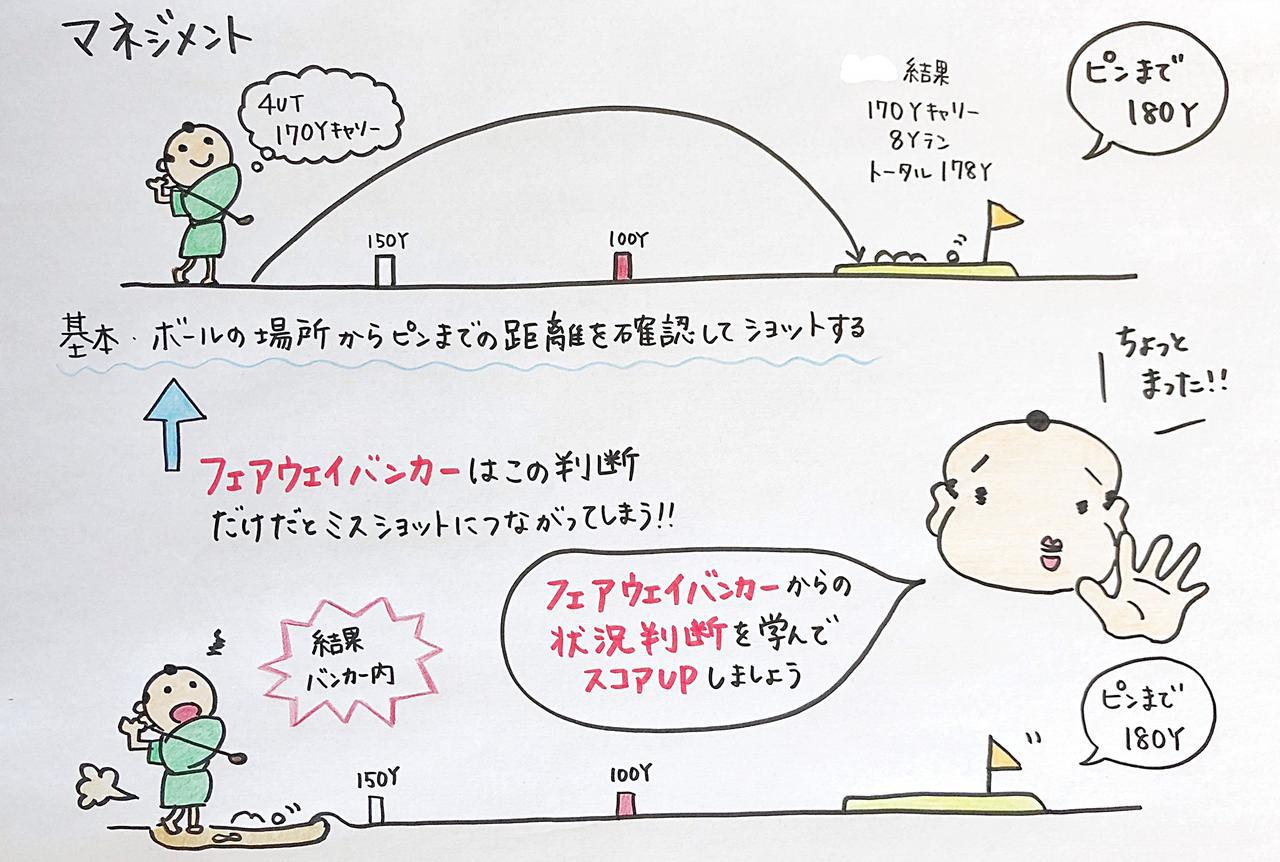 マネジメント
4UT
170Yキャリー
結果
170Yキャリー
8Yラン
トータル 178Y
ピンまで
180Y
150Y
100Y
基本・ボールの場所からピンまでの距離を確認してショットする
ちょっと
まった!!
フェアウェイバンカーはこの判断
だけだとミスショットにつながってしまう!!
フェアウェイバンカーからの
状況判断を学んで
スコアUPしましょう
結果
バンカー内
ピンまで
180Y
150Y
100Y